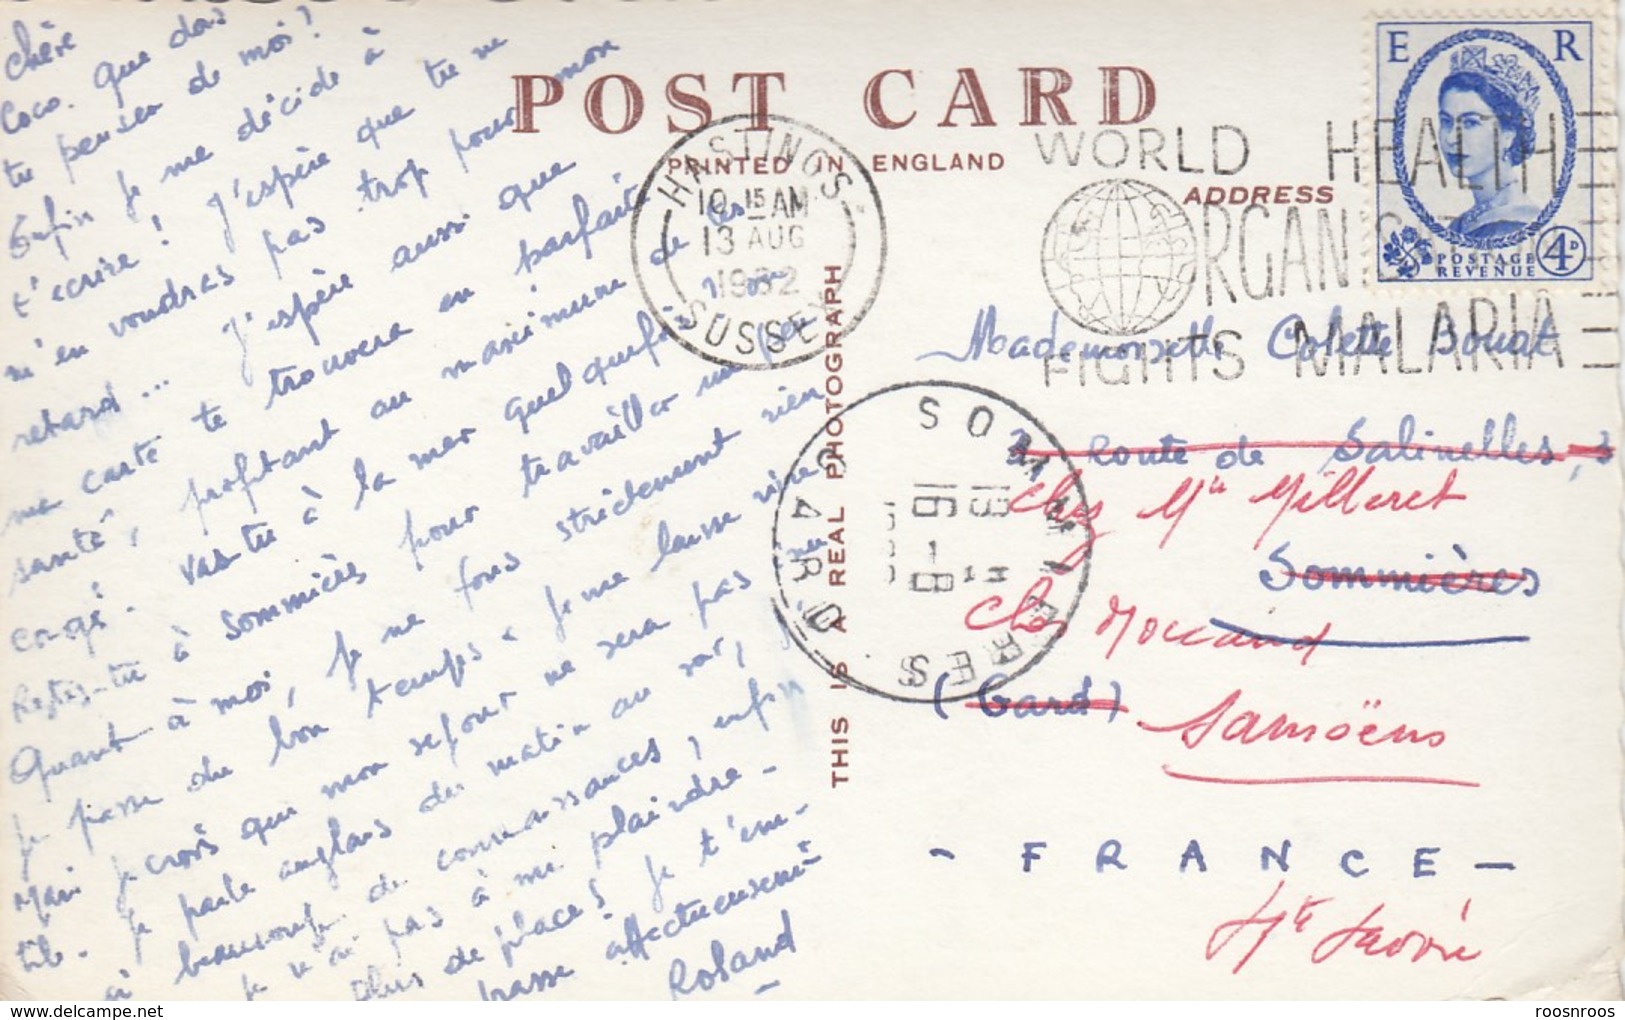 Chère
Coco. Que dois
tu penser de moi?
Enfin je me décide à
t'écrire! J'espère que tu ne
m'en voudras pas trop pour mon
retard... J'espère aussi que
ma carte te trouvera en parfaite
santé, profitant au maximum de
congé. Vas-tu à la mer quelquefois
Restes-tu à Sommières pour travailler un peu
Quant à moi, je ne fais strictement rien
je passe du bon temps. Je me laisse vivre
Mais je crois que mon séjour ne sera pas
je parle anglais du matin au soir, j'ai
beaucoup de connaissances, enfin
je n'ai pas à me plaindre-
plus de place! Je t'em-
brasse affectueusement
Roland
POST CARD
PRINTED IN ENGLAND
ADDRESS
THIS IS A REAL PHOTOGRAPH
HASTINGS
10 15 AM
13 AUG
1962
SUSSEX
WORLD HEALTH
ORGANISATION
FIGHTS MALARIA
E R
POSTAGE
REVENUE
4D
SOMMIERES
16-8
GARD
Mademoiselle Colette Bouat
3 Route de Salinelles, 3
Chez Mme Milleret
Sommières
Chez Moccand
(Gard)
Samoëns
- FRANCE -
Hte Savoie
roosnroos